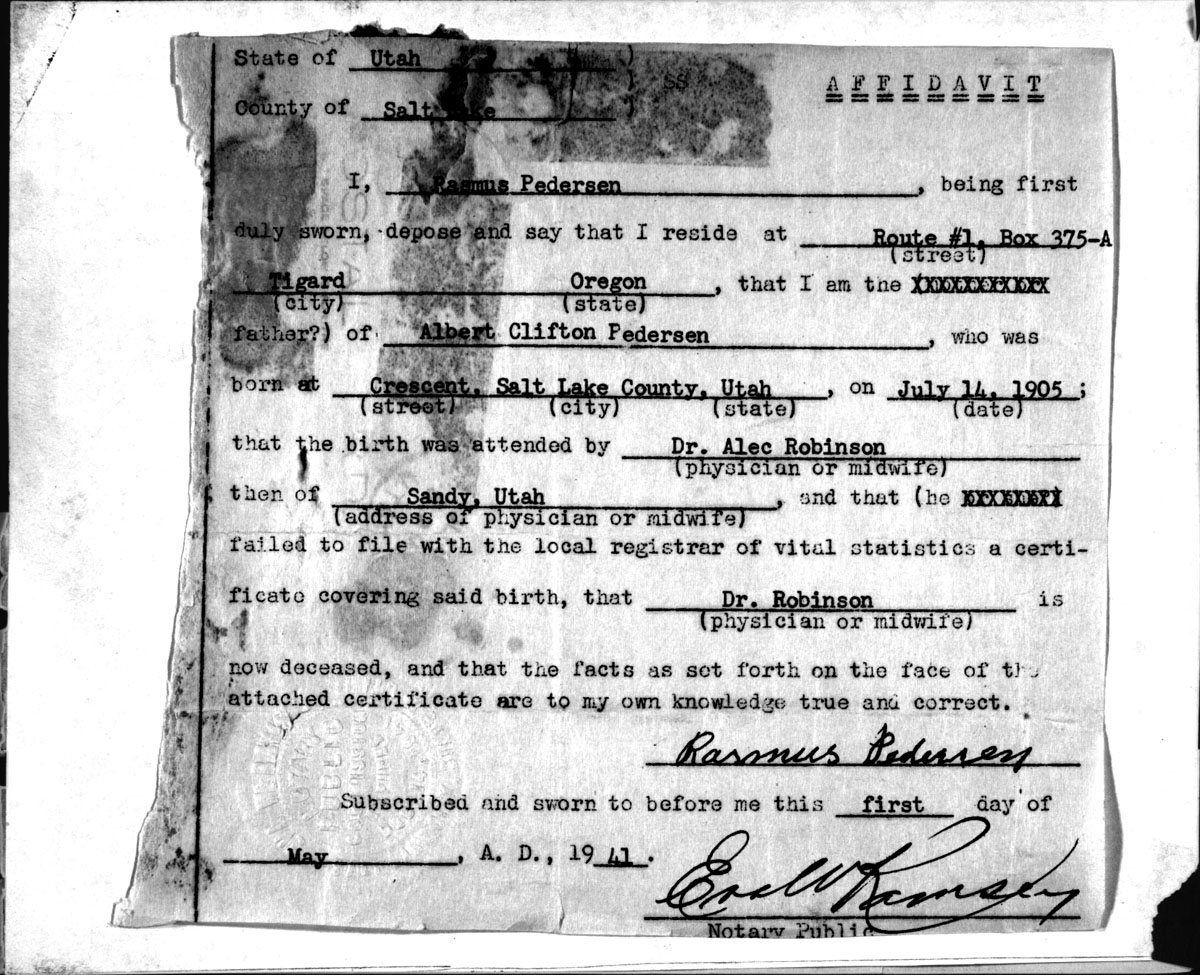 State of Utah )
) SS AFFIDAVIT
County of Salt Lake )
I, Rasmus Pedersen, being first
duly sworn, depose and say that I reside at Route #1, Box 375-A
(street)
Tigard Oregon, that I am the XXXXXXXXXXX
(city) (state)
father?) of Albert Clifton Pedersen, who was
born at Crescent, Salt Lake County, Utah, on July 14, 1905;
(street) (city) (state) (date)
that the birth was attended by Dr. Alec Robinson
(physician or midwife)
then of Sandy, Utah, and that (he XXXXXXXX
(address of physician or midwife)
failed to file with the local registrar of vital statistics a certi-
ficate covering said birth, that Dr. Robinson is
(physician or midwife)
now deceased, and that the facts as set forth on the face of the
attached certificate are to my own knowledge true and correct.
Rasmus Pedersen
Subscribed and sworn to before me this first day of
May, A. D., 1941.
Ramsey
Notary Public